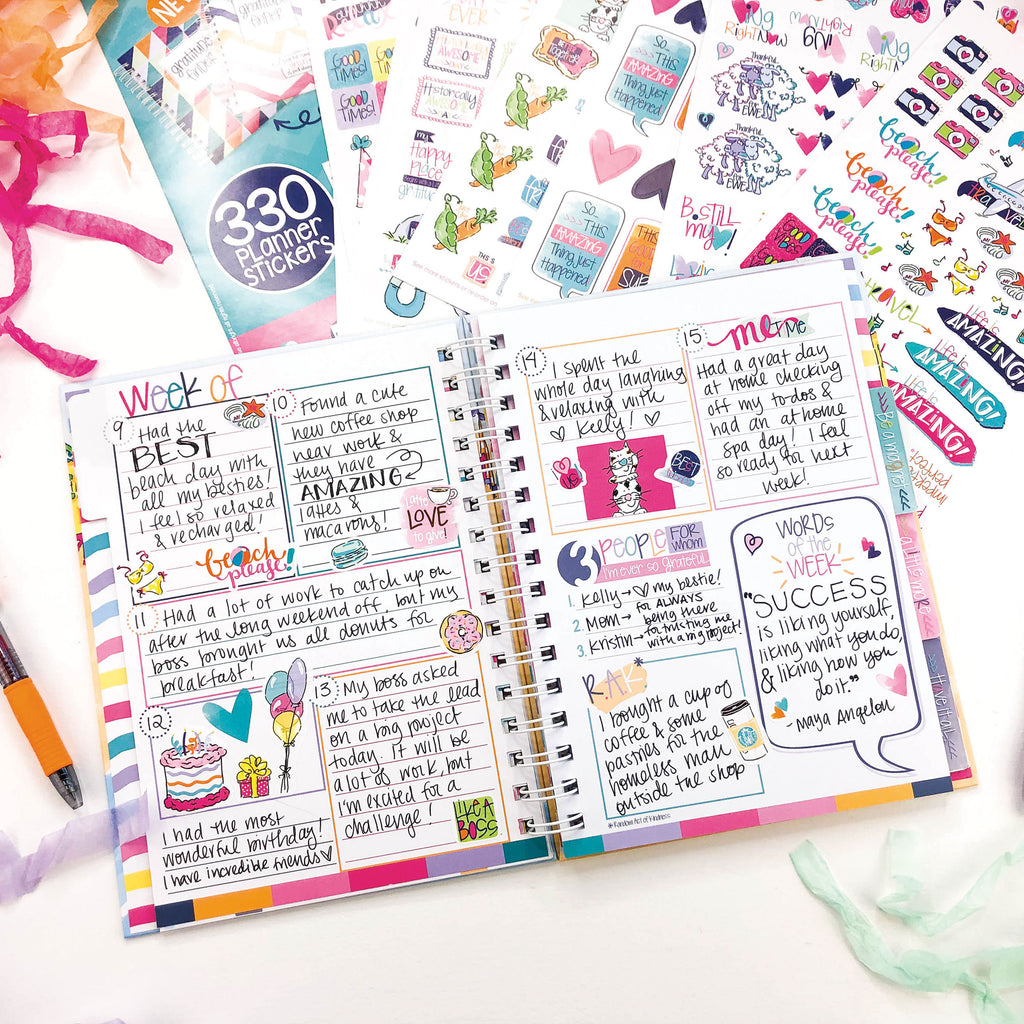 NEW
gratitude
finder
330
PLANNER
STICKERS
GOOD
TIMES!
GOOD
TIMES!
EVER
Historically
AWESOME
my
Happy
place
gratitude
THIS IS
US
So...
This
AMAZING
Thing Just
Happened
So...
This
AMAZING
Thing Just
Happened
Right Now
Thankful
EWE
Thankful
EWE
B. STILL
My
beach
please!
beach
please!
beach
please!
TRAVEL
TRAVEL
Life is
AMAZING!
Life is
AMAZING!
Life is
AMAZING!
Week of
9 Had the
BEST
beach day with
all my besties!
I feel so relaxed
& recharged!
beach
please!
10 Found a cute
new coffee shop
near work &
they have
AMAZING
lattes &
macarons!
I latte
LOVE
to give!
11 Had a lot of work to catch up on
after the long weekend off, but my
boss brought us all donuts for
breakfast!
12
I had the most
wonderful birthday!
I have incredible friends ♡
13 My boss asked
me to take the lead
on a big project
today. It will be
a lot of work, but
I'm excited for a
challenge!
LIKE A
BOSS
14 I spent the
whole day laughing
& relaxing with
♡ Kelly! ♡
BEST
15 me TIME
Had a great day
at home checking
off my to-dos &
had an at home
spa day! I feel
so ready for next
week!
3 PEOPLE FOR WHOM
I'm ever so grateful
1. Kelly → ♡ my bestie!
2. Mom → for ALWAYS being there
3. Kristin → for trusting me with a big project!
R.A.K*
I bought a cup of
coffee & some
pastries for the
homeless man
outside the shop
* Random Act of Kindness
WORDS
of the
WEEK
"SUCCESS
is liking yourself,
liking what you do,
& liking how you
do it."
- Maya Angelou
Be amazing
a little more